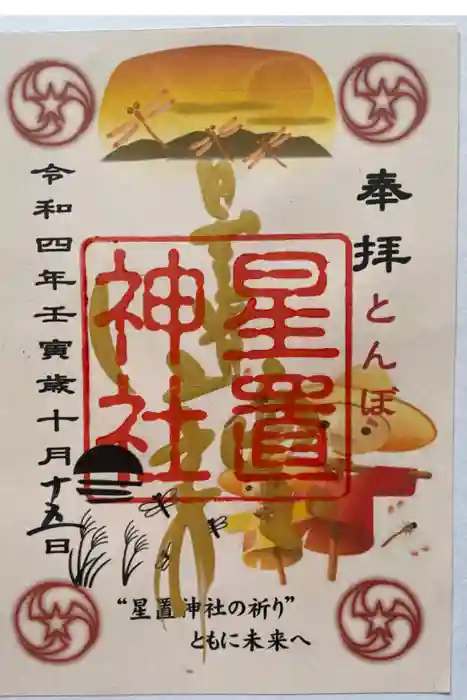 奉拝
とんぼ
星置
神社
令和四年壬寅歳十月十五日
“星置神社の祈り”
ともに未来へ